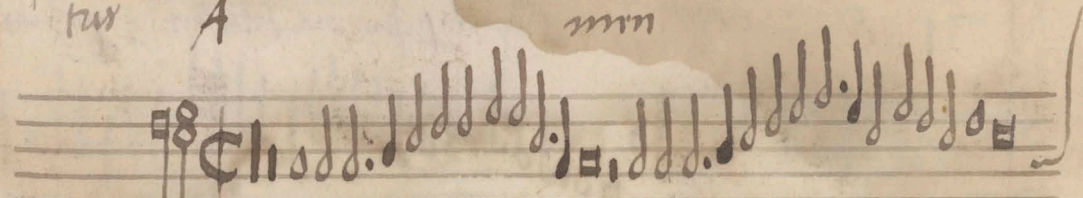 tus A men